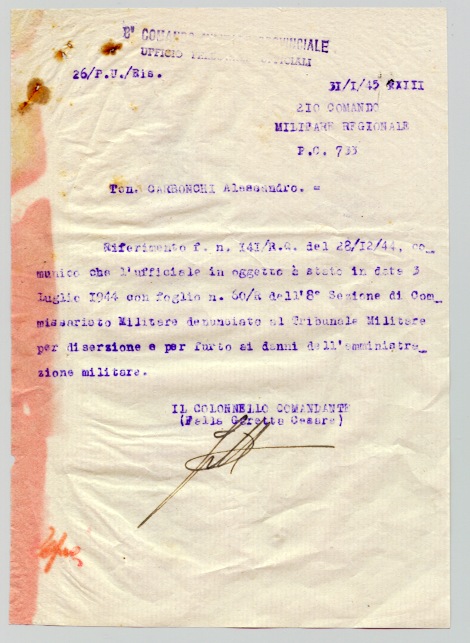 8° COMANDO PROVINCIALE
UFFICIO UFFICIALI
26/P.U./Ris.
31/I/45 XXIII
210 COMANDO
MILITARE REGIONALE
P.C. 733
Ten. CARBONCHI Alessandro. =
Riferimento f. n. I4I/R.Q. del 28/12/44, co_
munico che l'ufficiale in oggetto è stato in data 3
Luglio I944 con foglio n. 60/R dell'8° Sezione di Com_
missariato Militare denunciato al Tribunale Militare
per diserzione e per furto ai danni dell'amministra_
zione militare.
IL COLONNELLO COMANDANTE
(Della Cesare)